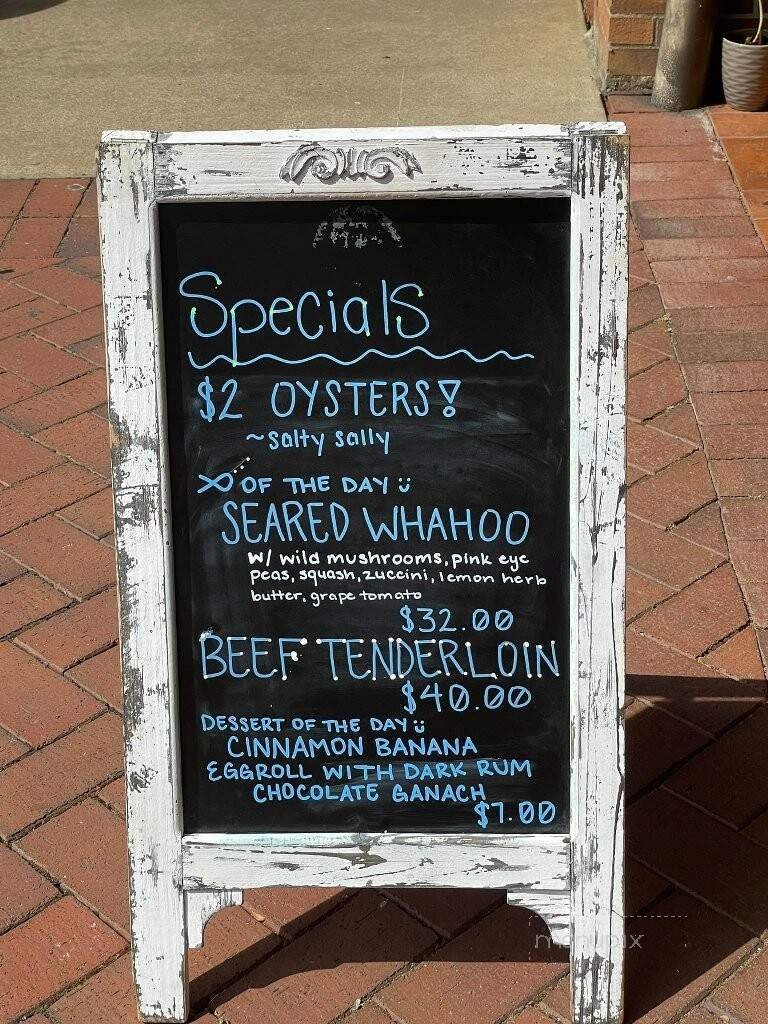 Specials
$2 OYSTERS!
~salty sally
OF THE DAY
SEARED WHAHOO
W/ wild mushrooms, pink eye
peas, squash, zuccini, lemon herb
butter, grape tomato
$32.00
BEEF TENDERLOIN
$40.00
DESSERT OF THE DAY
CINNAMON BANANA
EGGROLL WITH DARK RUM
CHOCOLATE GANACH
$7.00